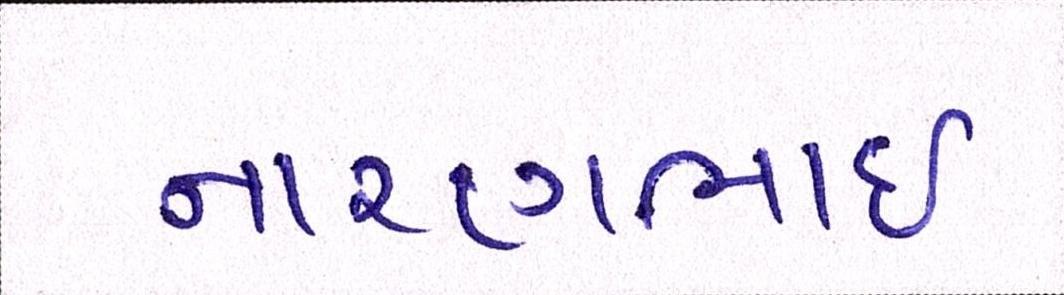 નારણભાઈ